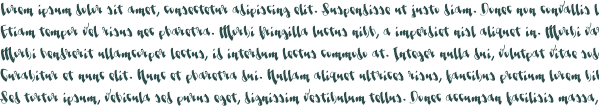 lorem ipsum dolor sit amet, consectetur adipiscing elit. Suspendisse ut justo diam. Donec non convallis l
Etiam tempor vel risus nec pharetra. Morbi fringilla luctus nibh, a imperdiet nisl aliquet in. Morbi va
Morbi hendrerit ullamcorper lectus, id interdum lectus commodo at. Integer nulla dui, volutpat vitae sus
Curabitur et nunc elit. Nunc et pharetra dui. Nullam aliquet ultrices risus, faucibus pretium lorem bi
Sed tortor ipsum, vehicula sed purus eget, dignissim vestibulum tellus. Donec accumsan facilisis massa,